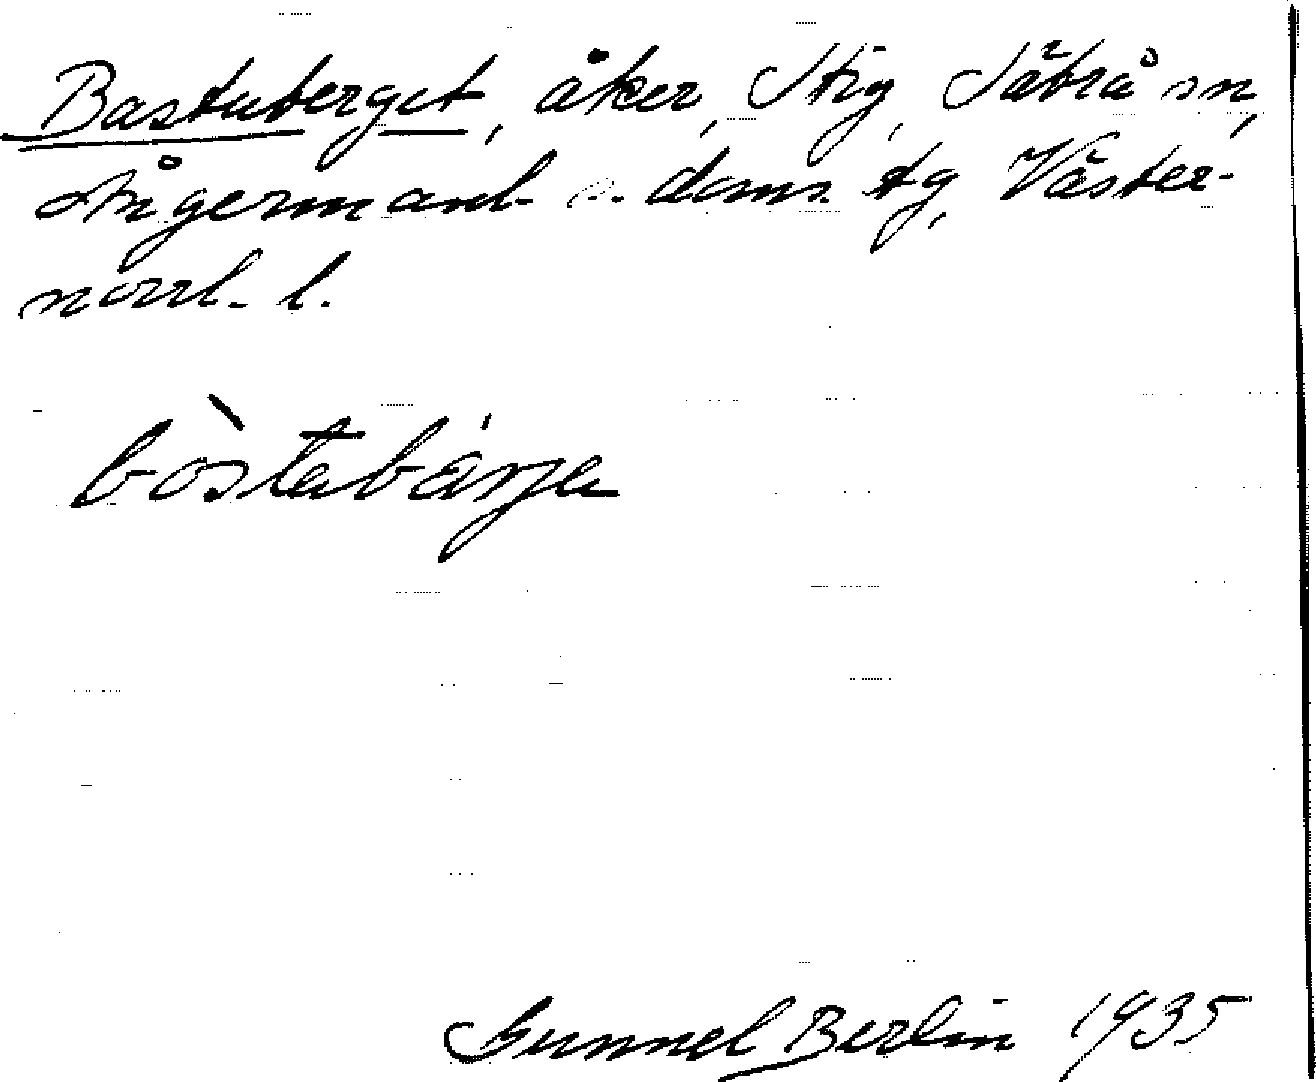 Bastuberget, åker, Stig, Säbrå sn,
Ångermanl. s. doms. tg, Väster-
norrl. l.
bòstabárja
Gunnel Berlin 1935